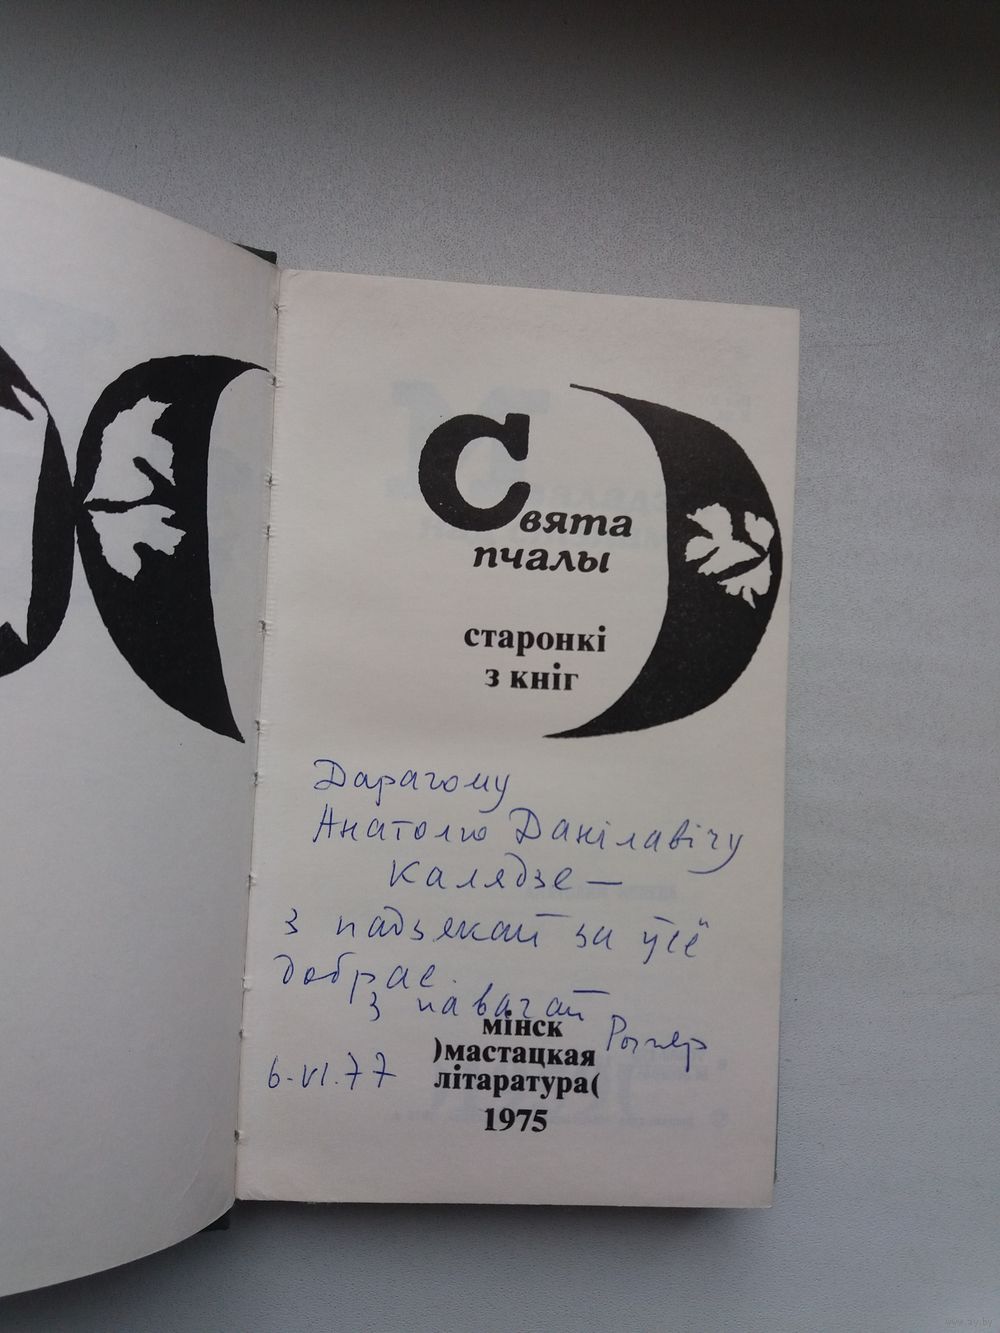 Свята
пчалы
старонкі
з кніг
Дарагому
Анатолю Данілавічу
Калядзе —
з падзякай за ўсё
добрае.
З павагай
6.VI.77
мінск
)мастацкая
літаратура(
1975
www.ay.by